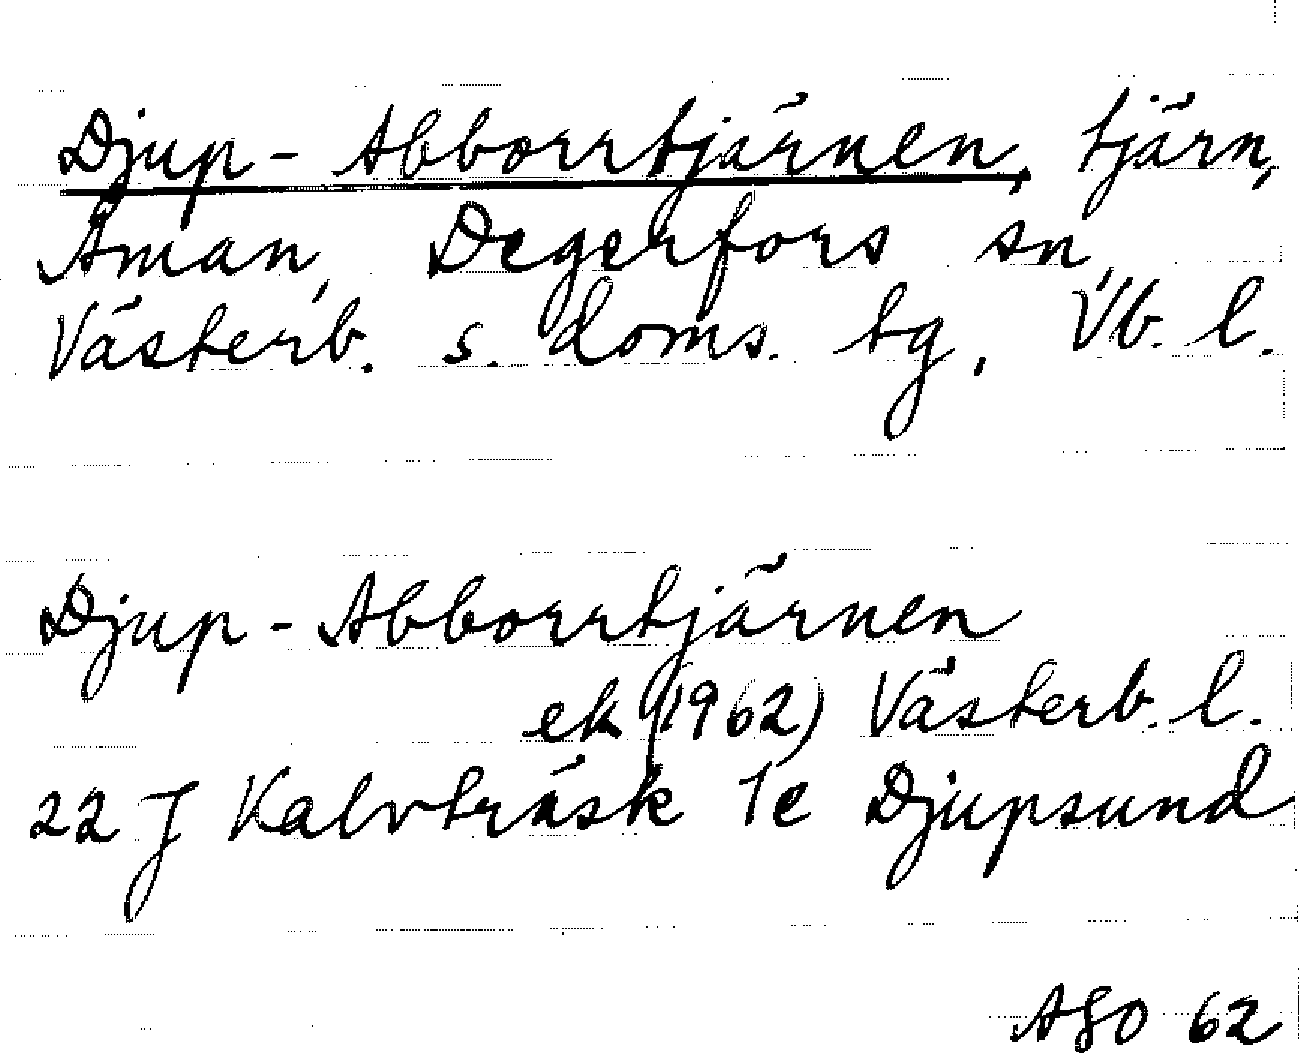 Djup-Abborrtjärnen, tjärn,
Åman, Degerfors sn,
Västerb. s. doms. tg, Vb. l.
Djup-Abborrtjärnen
ek (1962) Västerb. l.
22 J Kalvträsk 1e Djupsund
62